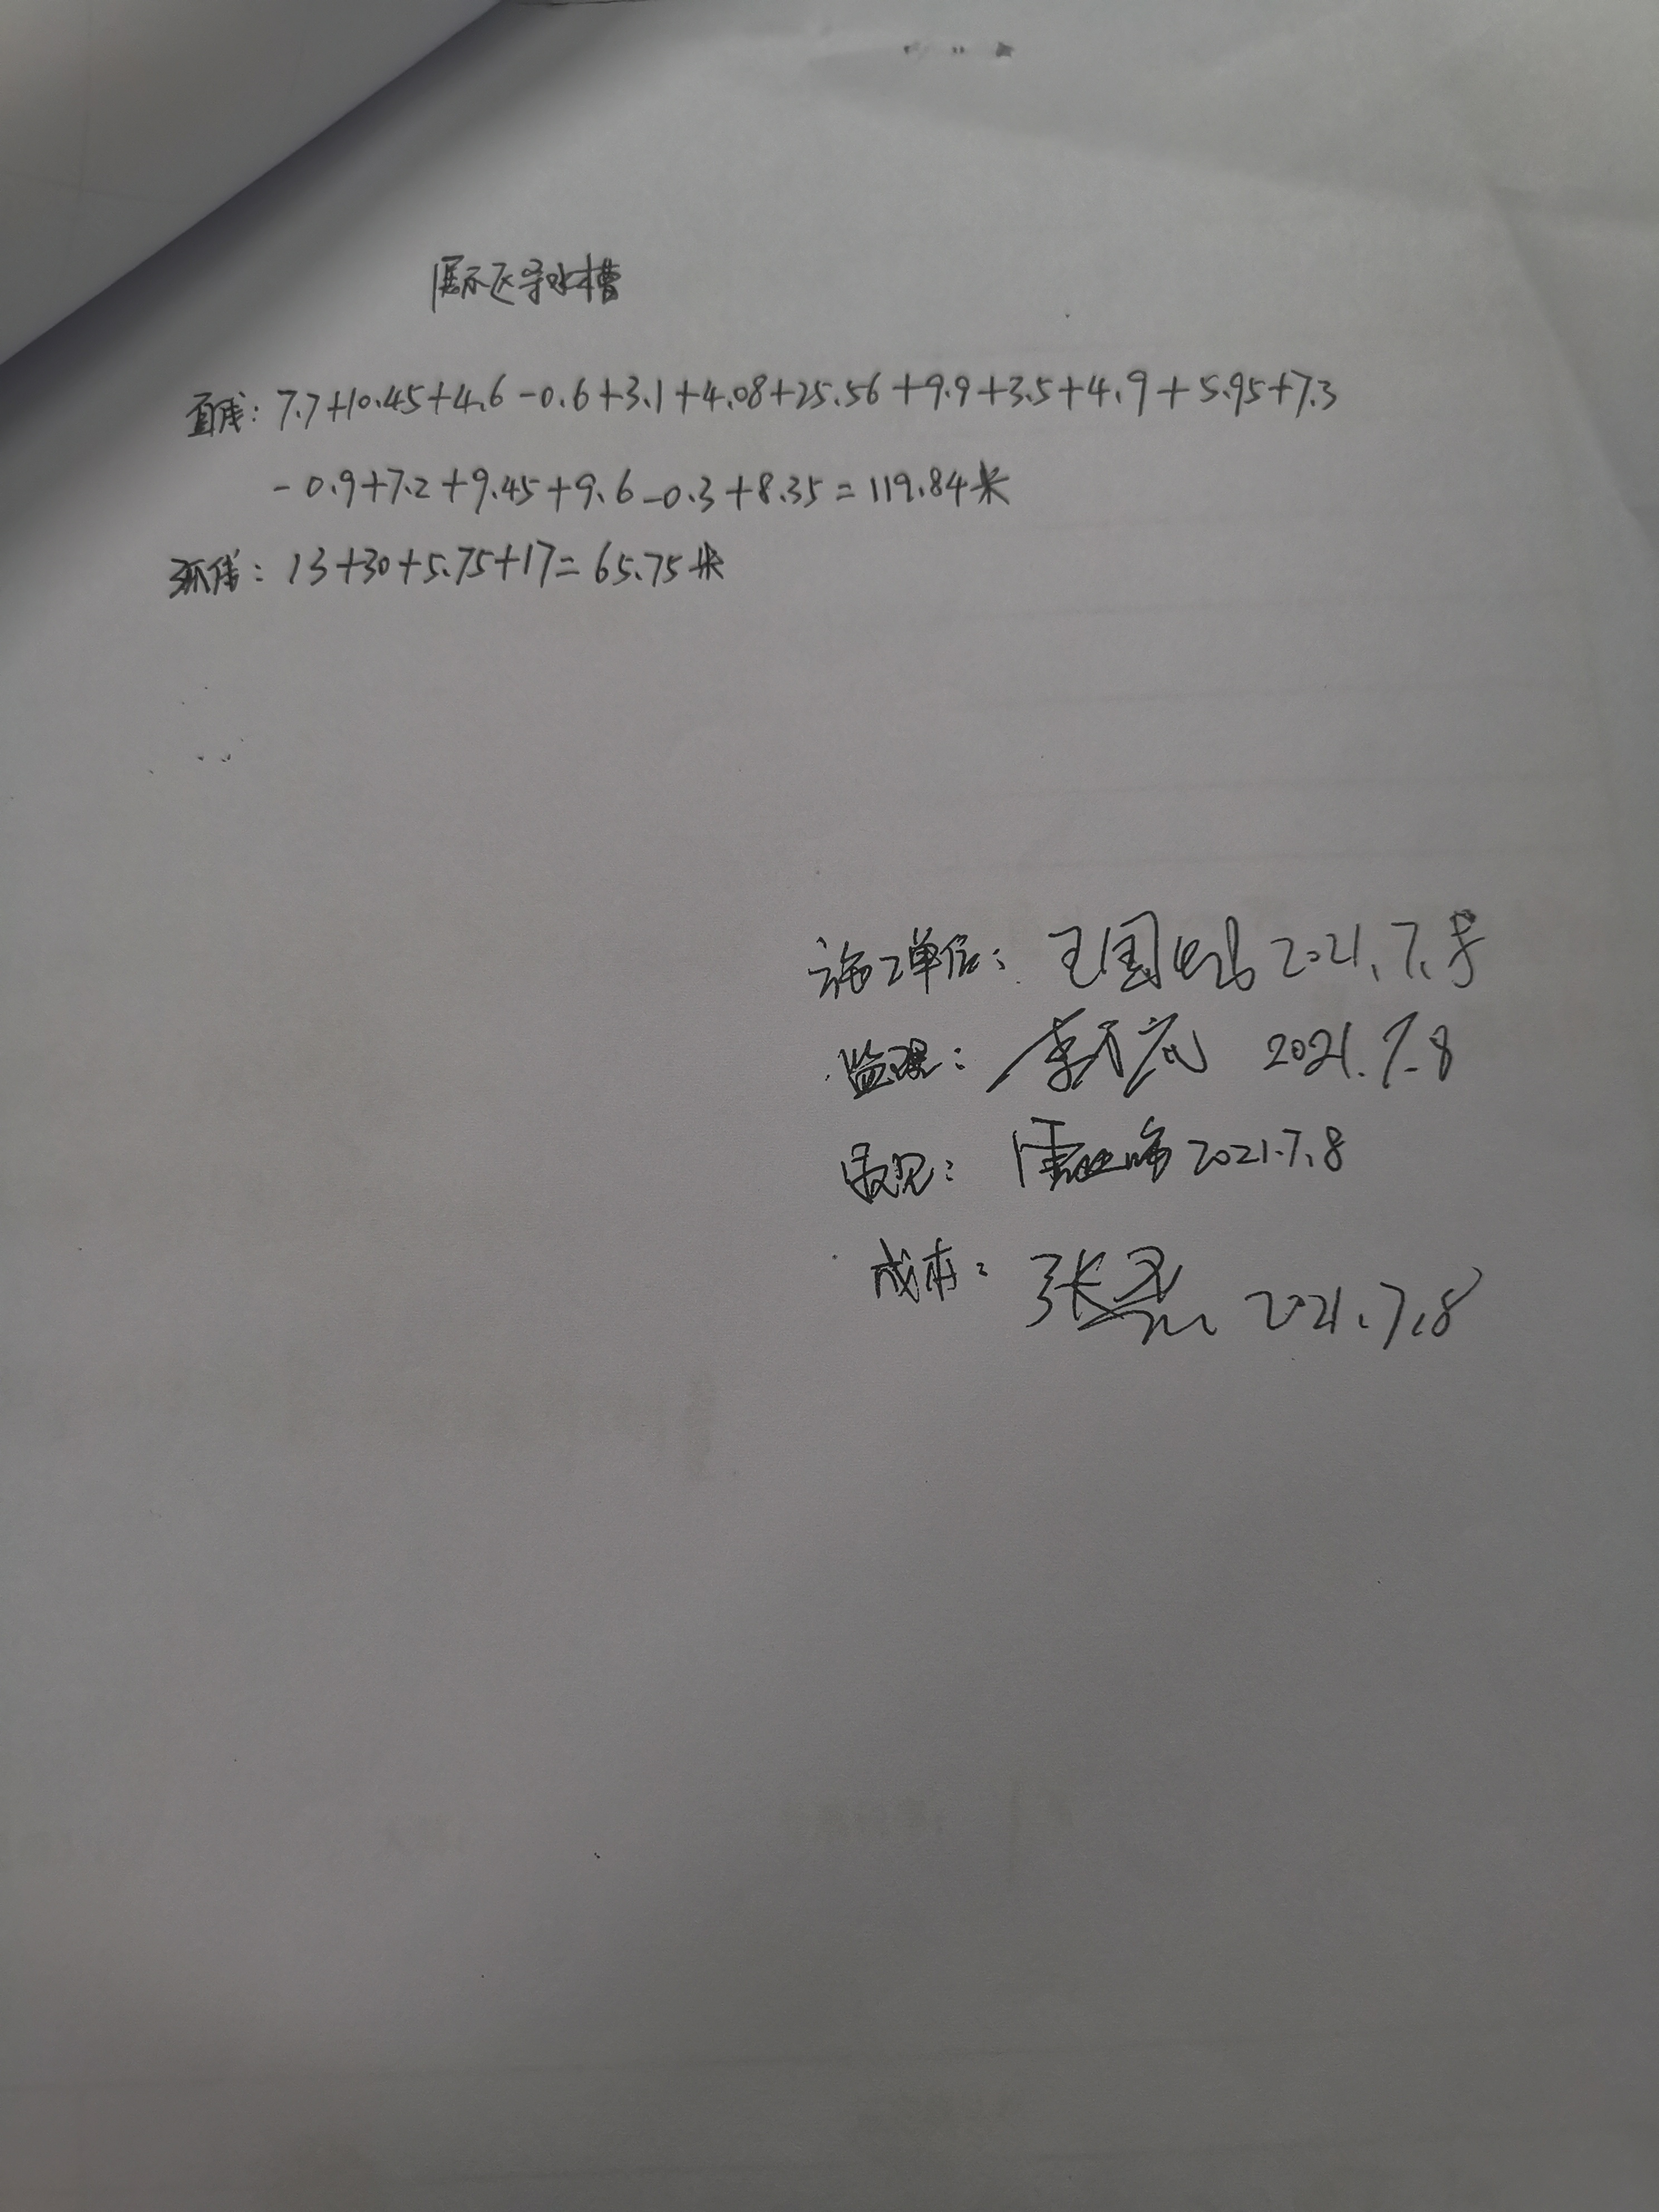 展示区导水槽
直线：7.7+10.45+4.6-0.6+3.1+4.08+25.56+9.9+3.5+4.9+5.95+7.3
-0.9+7.2+9.45+9.6-0.3+8.35=119.84米
弧线：13+30+5.75+17=65.75米
施工单位：王国 2021.7.8
监理：李 2021.7.8
景观：雷 2021.7.8
成本：张 2021.7.8